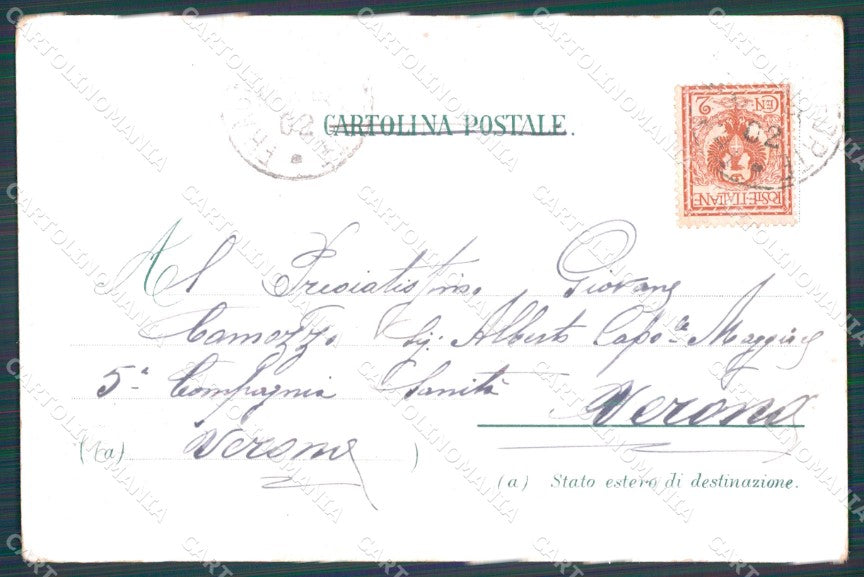 CARTOLINA POSTALE.
CEN 2
POSTE ITALIANE
02
02
Al Pregiatissimo Giovane
Camozzo Sig. Alberto Cap.le Maggiore
5ª Compagnia Sanità
Verona
(a) Verona )
(a) Stato estero di destinazione.
CARTOLINOMANIA